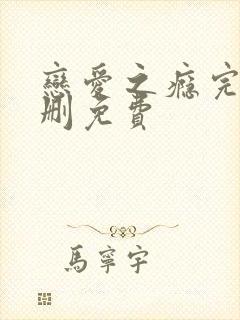 戀愛之癮完
刪免費
馬寧宇